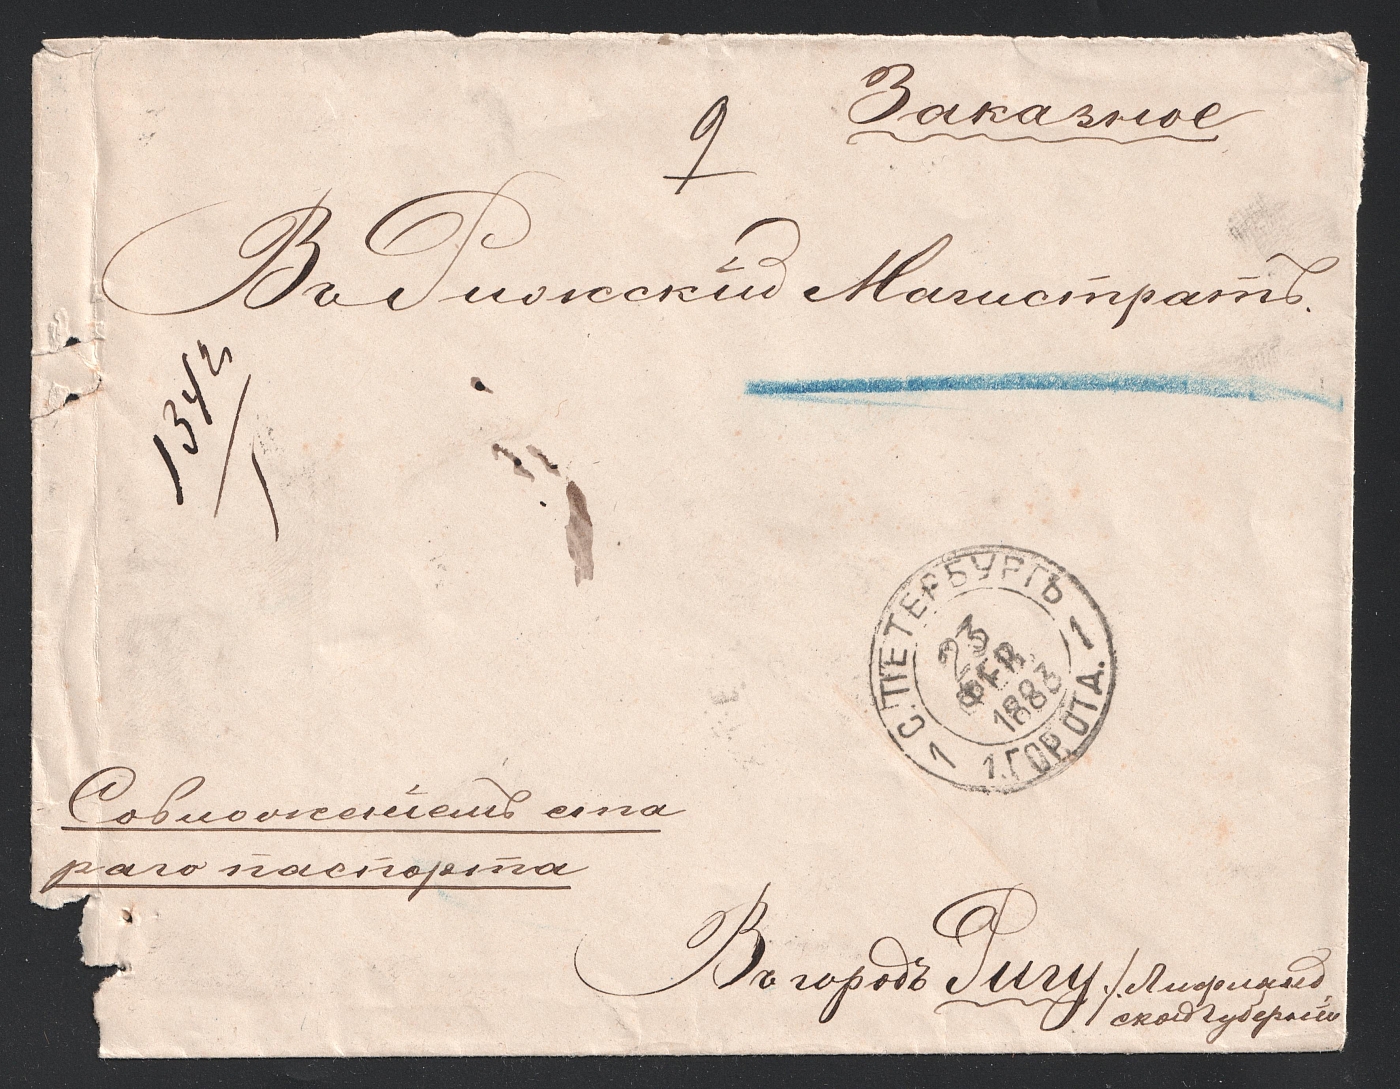 Заказное
9
Въ Рижскій Магистратъ.
1342/1
С. ПЕТЕРБУРГЪ 1
23
ФЕВ.
1883
1 1.ГОР. ОТД.
Совложеніемъ ста
раго паспорта
Въ городъ Ригу /Лифлянд
ской губерніи